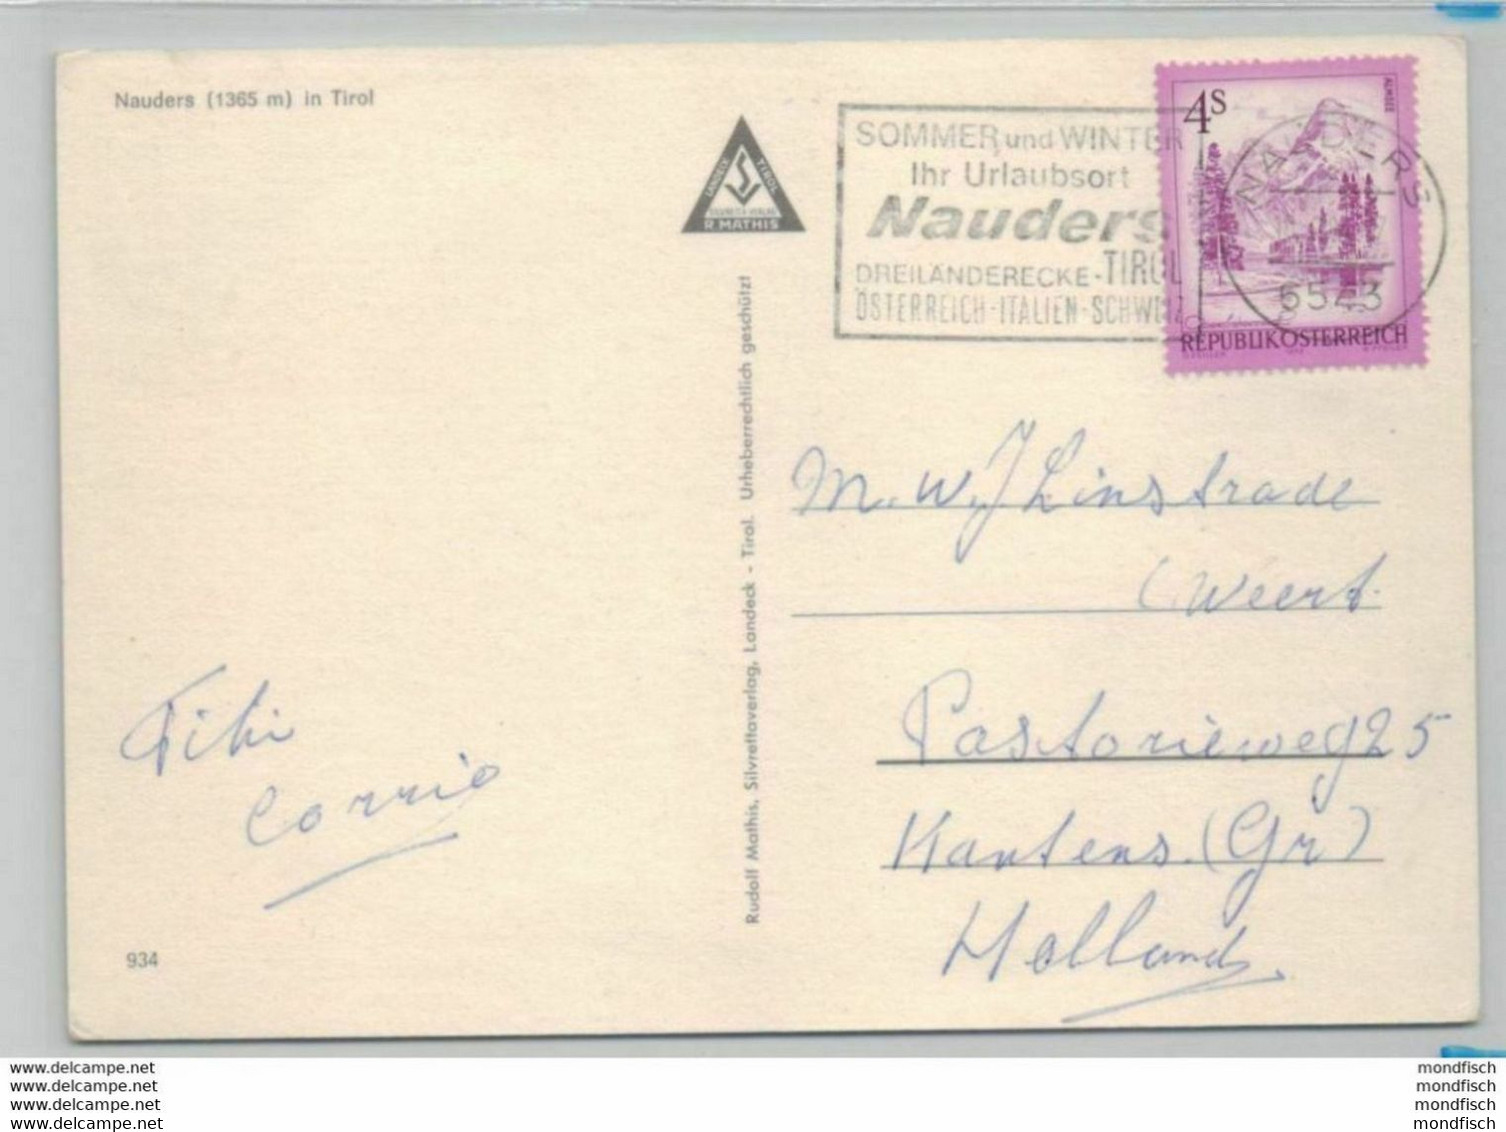 Nauders (1365 m) in Tirol
LANDECK TIROL
SILVRETTA-VERLAG
R. MATHIS
SOMMER und WINTER
Ihr Urlaubsort
Nauders
DREILÄNDERECKE-TIROL
ÖSTERREICH-ITALIEN-SCHWEIZ
4S
ALMSEE
NAUDERS
6543
REPUBLIK ÖSTERREICH
Rudolf Mathis, Silvrettaverlag, Landeck - Tirol. Urheberrechtlich geschützt
M. W. J Linstrade
(Weert.
Pastorieweg 25
Kantens. (Gr)
Holland
Corrie
934
www.delcampe.net
www.delcampe.net
www.delcampe.net
www.delcampe.net
mondfisch
mondfisch
mondfisch
mondfisch